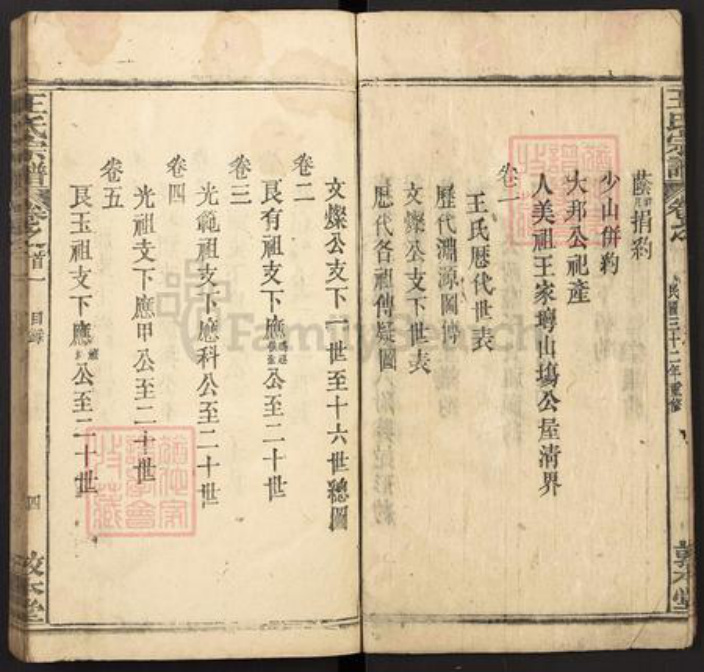 王氏宗譜
民國三十二年重修
敦本堂
捐約
少山併約
大邦公祀產
人美祖王家塆山塲公屋清界
卷一
王氏歷代世表
歷代淵源圖傳
文燦公支下世表
歷代各祖傳疑圖
文燦公支下一世至十六世總圖
卷二
艮有祖支下應公至二十世
卷三
光範祖支下應科公至二十世
卷四
光祖支下應甲公至二十世
卷五
艮玉祖支下應公至二十世
王氏宗譜
卷之首一
目錄
四
敦本堂
FamilySearch